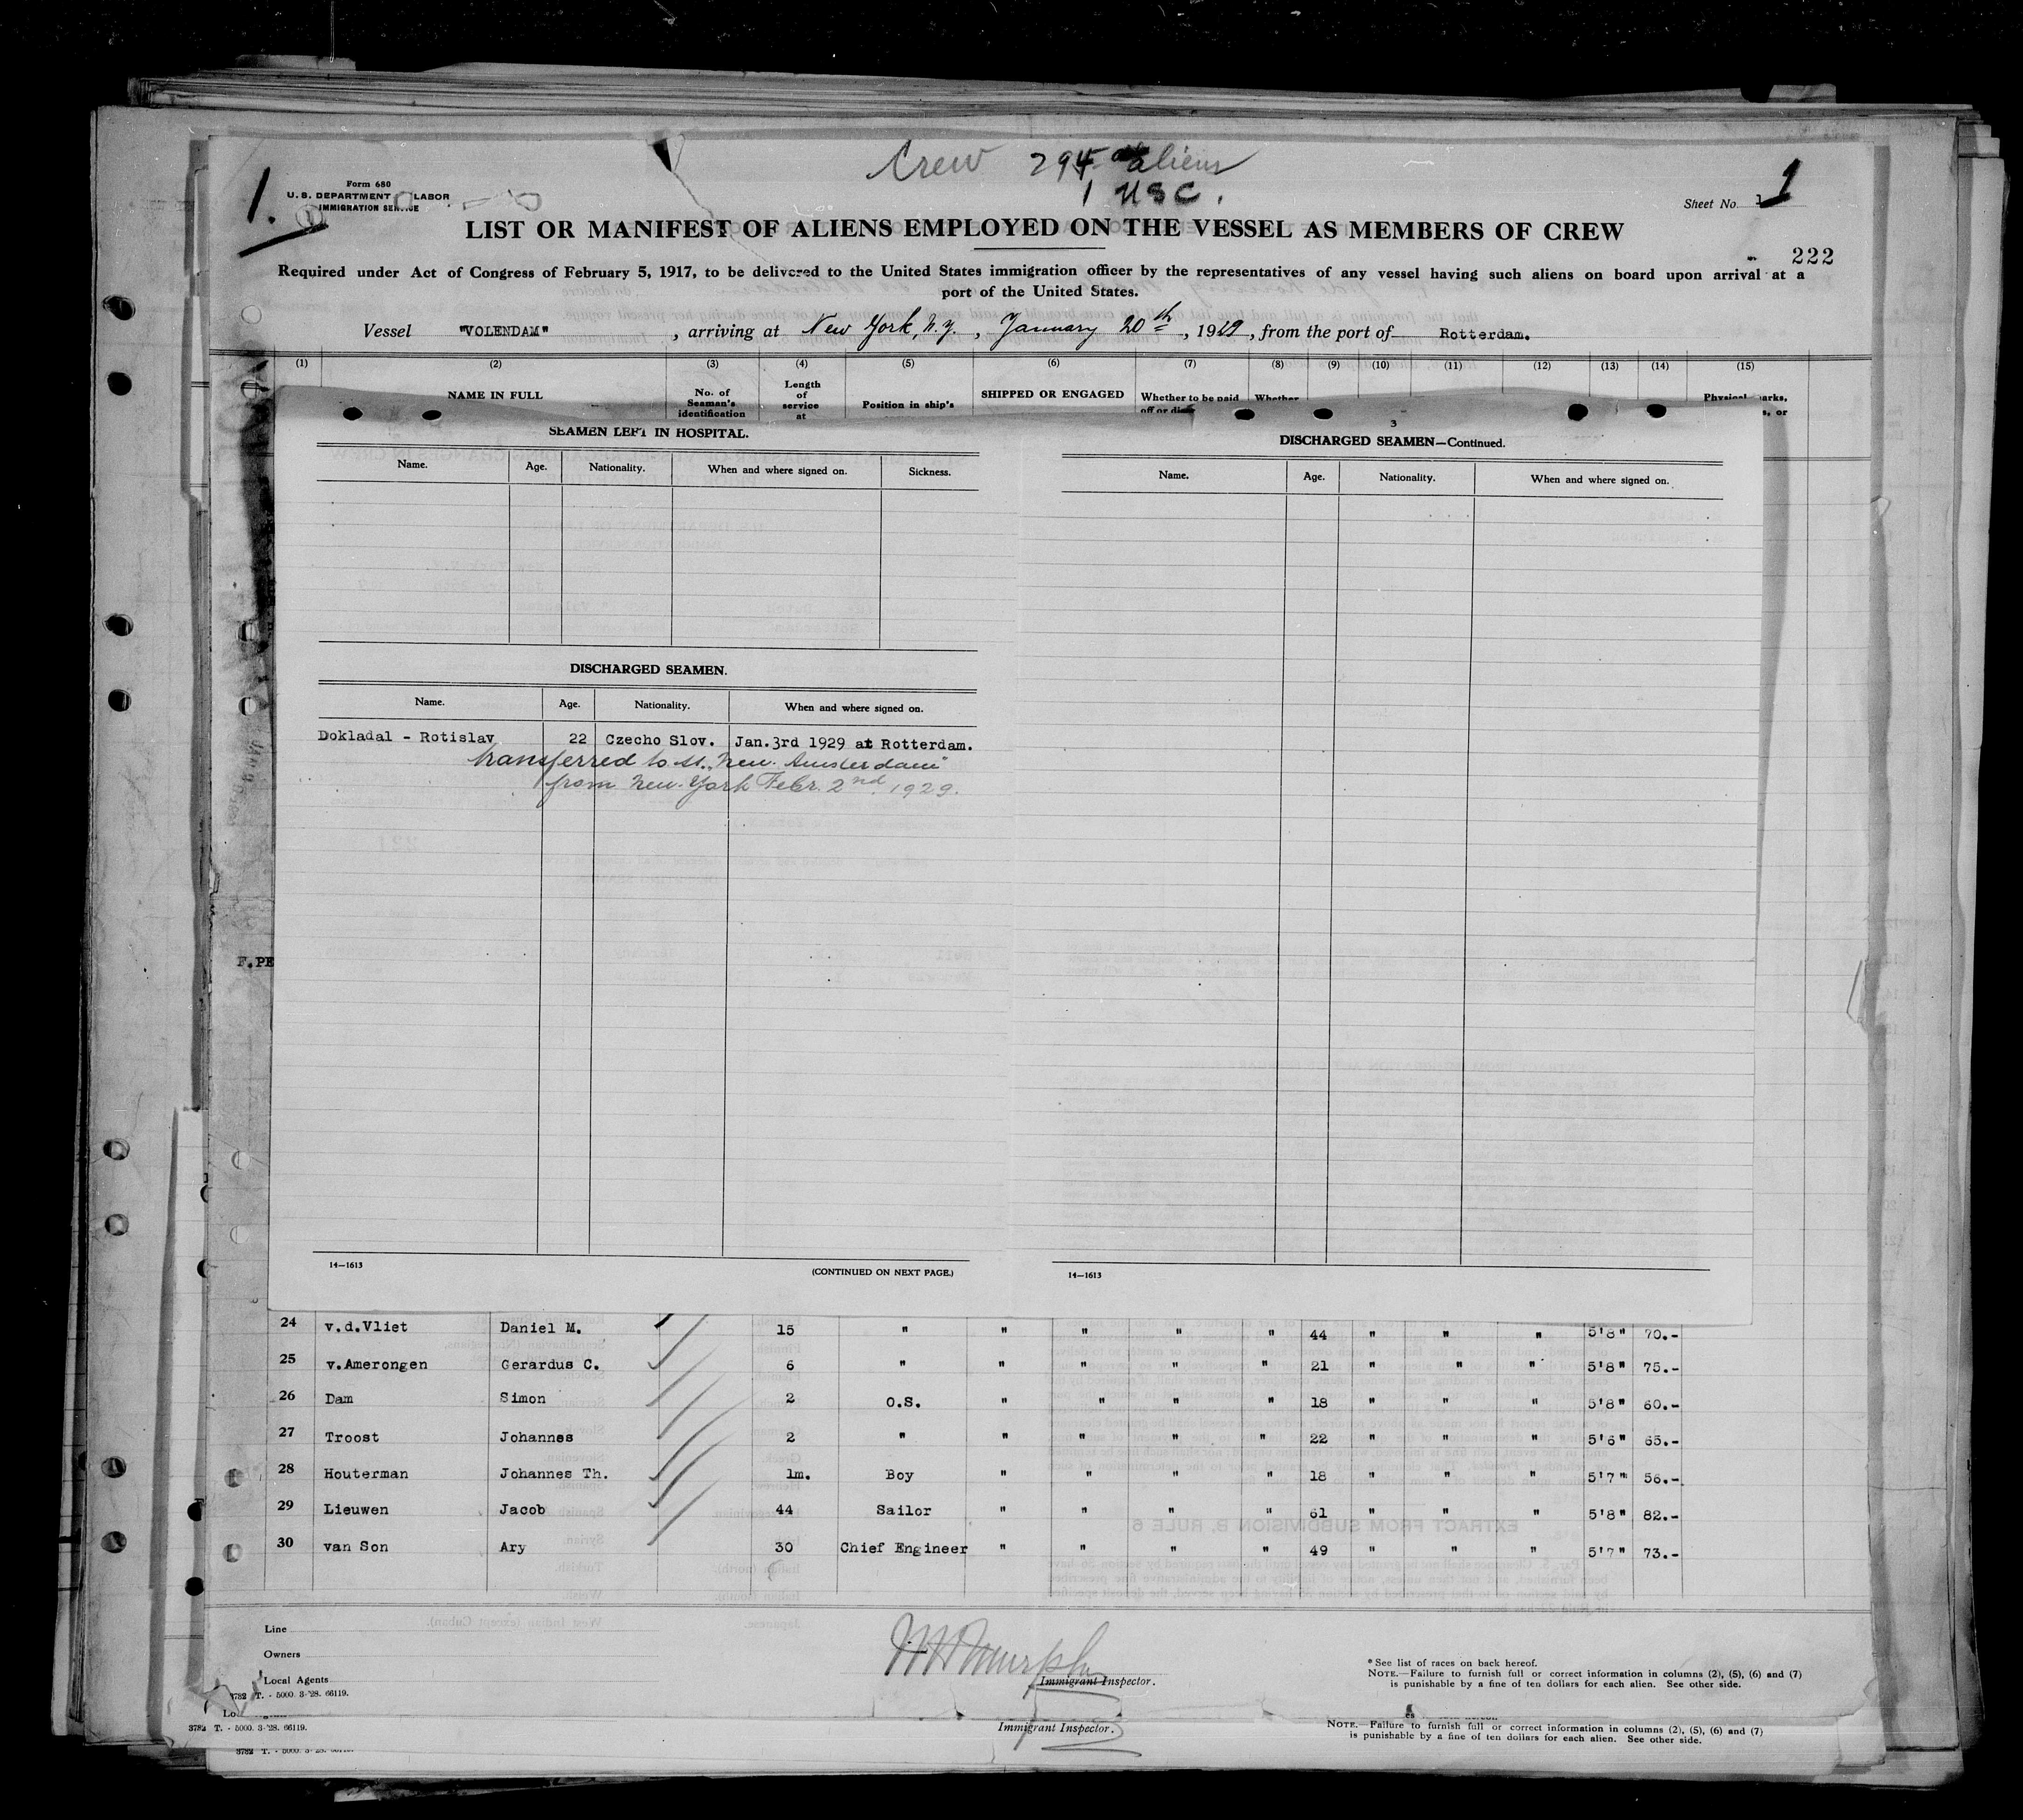 Crew 295 aliens
1 USC.
1.
Form 680
U. S. DEPARTMENT LABOR
IMMIGRATION SERVICE
Sheet No. 1
LIST OR MANIFEST OF ALIENS EMPLOYED ON THE VESSEL AS MEMBERS OF CREW
222
Required under Act of Congress of February 5, 1917, to be delivered to the United States immigration officer by the representatives of any vessel having such aliens on board upon arrival at a
port of the United States.
Vessel "VOLENDAM" , arriving at New York, N.Y. , January 20th , 1929 , from the port of Rotterdam.
(1) (2) (3) (4) (5) (6) (7) (8) (9) (10) (11) (12) (13) (14) (15)
NAME IN FULL
No. of
Seaman's
identification
Length
of
service
at
Position in ship's
SHIPPED OR ENGAGED
Whether to be paid
Whether
SEAMEN LEFT IN HOSPITAL.
Name. Age. Nationality. When and where signed on. Sickness.
DISCHARGED SEAMEN.
Name. Age. Nationality. When and where signed on.
Dokladal - Rotislav 22 Czecho Slov. Jan.3rd 1929 at Rotterdam.
transferred to ss. "New. Amsterdam"
from New. York Febr. 2nd 1929.
14—1613
(CONTINUED ON NEXT PAGE.)
3
DISCHARGED SEAMEN—Continued.
Name. Age. Nationality. When and where signed on.
14—1613
F.PE
24 v.d.Vliet Daniel M. 15 " " " " " 44 " " " 5'8" 70.-
25 v.Amerongen Gerardus C. 6 " " " " " 21 " " " 5'8" 75.-
26 Dam Simon 2 O.S. " " " " 18 " " " 5'8" 60.-
27 Troost Johannes 2 " " " " " 22 " " " 5'6" 65.-
28 Houterman Johannes Th. 1m. Boy " " " " 18 " " " 5'7" 56.-
29 Lieuwen Jacob 44 Sailor " " " " 61 " " " 5'8" 82.-
30 van Son Ary 30 Chief Engineer " " " " 49 " " " 5'7" 73.-
Line
Owners
Local Agents
3782 T. - 5000. 3-'28. 66119.
Immigrant Inspector.
* See list of races on back hereof.
NOTE.—Failure to furnish full or correct information in columns (2), (5), (6) and (7)
is punishable by a fine of ten dollars for each alien. See other side.
3782 T. - 5000. 3-'28. 66119.
Immigrant Inspector.
NOTE.—Failure to furnish full or correct information in columns (2), (5), (6) and (7)
is punishable by a fine of ten dollars for each alien. See other side.